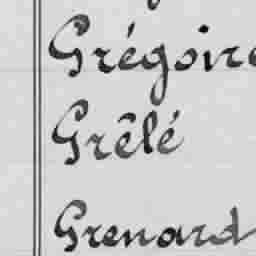 Grégoire
Grêlé
Grenard